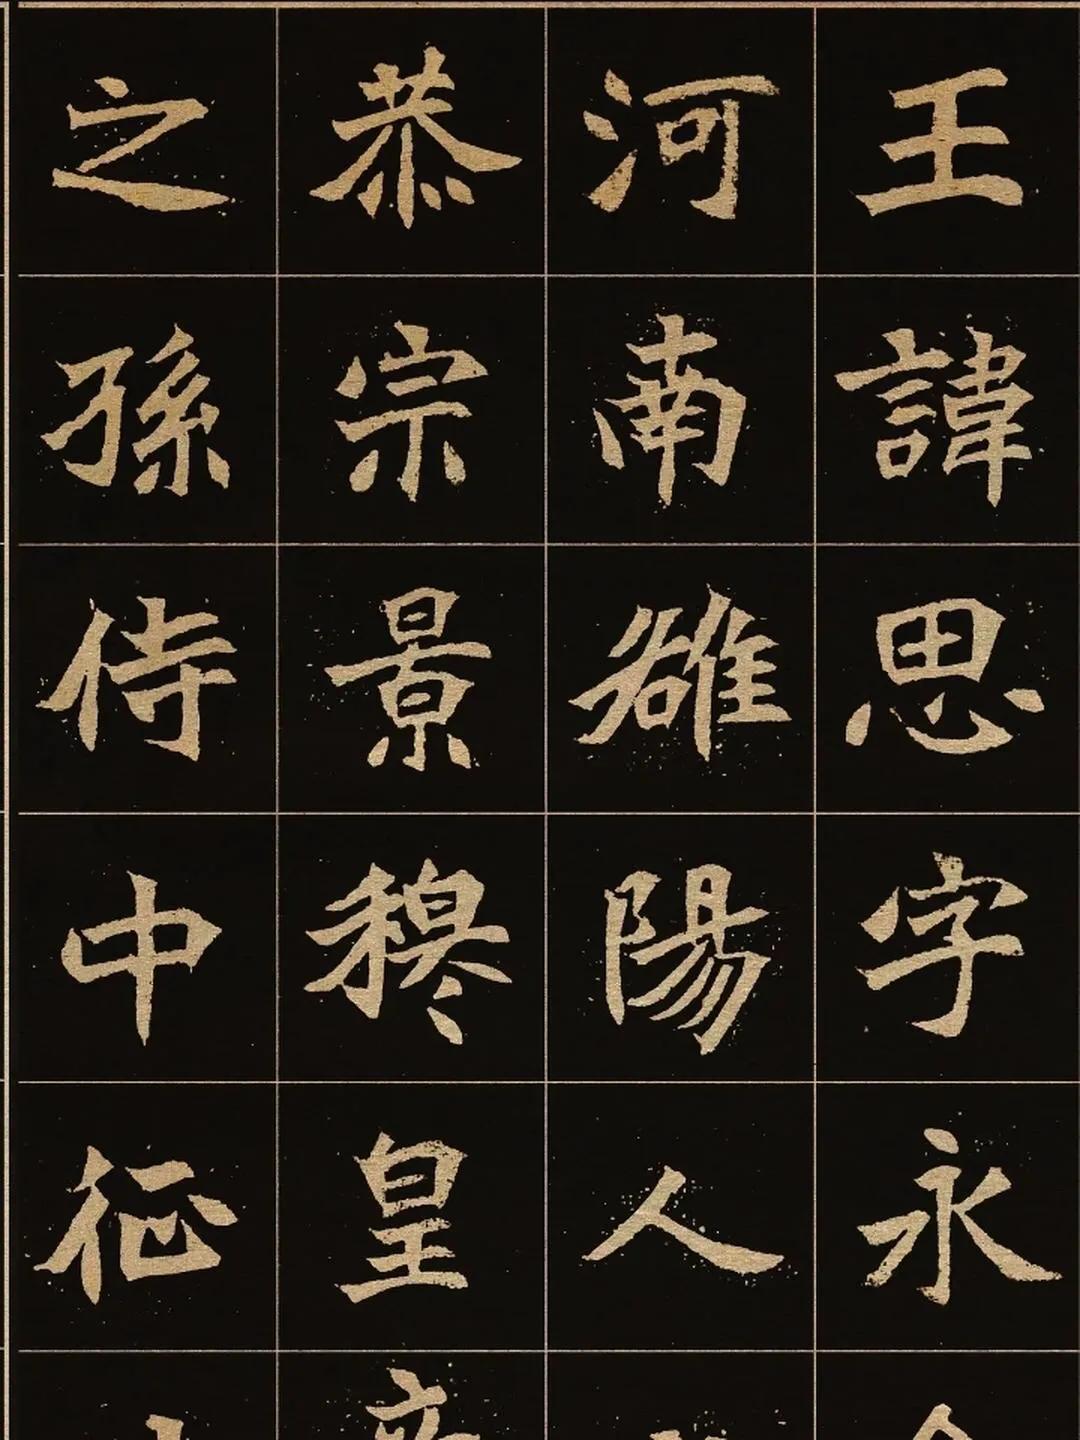 王諱思字永
河南雒陽人
恭宗景穆皇
之孫侍中征